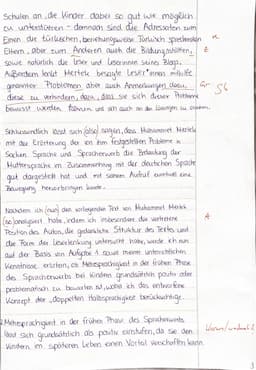 Schulen an, die Kinder dabei so gut wie möglich
zu unterstützen - demnach sind die Adressaten zum
Einen die türkischen, beziehungsweise Türkisch sprechenden
Eltern, aber zum Anderen auch die Bildungsstätten,
sowie natürlich die Leser und Leserinnen seines Blogs.
Außerdem lenkt Mertek besagte Leser*innen mithilfe
genannter Problemen, aber auch Anmerkungen dazu,
diese zu verhindern, dazu, dass sie sich dieser Probleme
bewusst werden können und sich auch an den Lösungen zu
Schlussendlich lässt sich (also) sagen, dass Muhammet Mertek
mit der Erörterung der von ihm festgestellten Probleme in
Sachen Sprache und Spracherwerb die Bedeutung der
Muttersprache im Zusammenhang mit der deutschen Sprache
gut dargestellt hat und mit seinem Aufruf eventuell eine
Bewegung hervorbringen könnte.
Nachdem ich (nun) den vorliegenden Text von Muhammet Mertek
analysiert habe, indem ich insbesondere die vertretene
Position des Autors, die gedankliche Struktur des Textes und
die Form der Leserlenkung untersucht habe, werde ich nun
auf der Basis von Aufgabe 1 sowie meiner unterrichtlichen
Kenntnisse erörtern, ob Mehrsprachigkeit in der frühen Phase
des Spracherwerbs bei Kindern grundsätzlich positiv oder
problematisch zu bewerten ist, wobei ich das entworfene
Konzept der „doppelten Halbsprachigkeit" berücksichtige.
2. Mehrsprachigkeit in der frühen Phase des Spracherwerbs
lässt sich grundsätzlich als positiv einstufen, da sie den
Kindern im späteren Leben einen Vorteil verschaffen kann.
R
Gr Sb
A
3